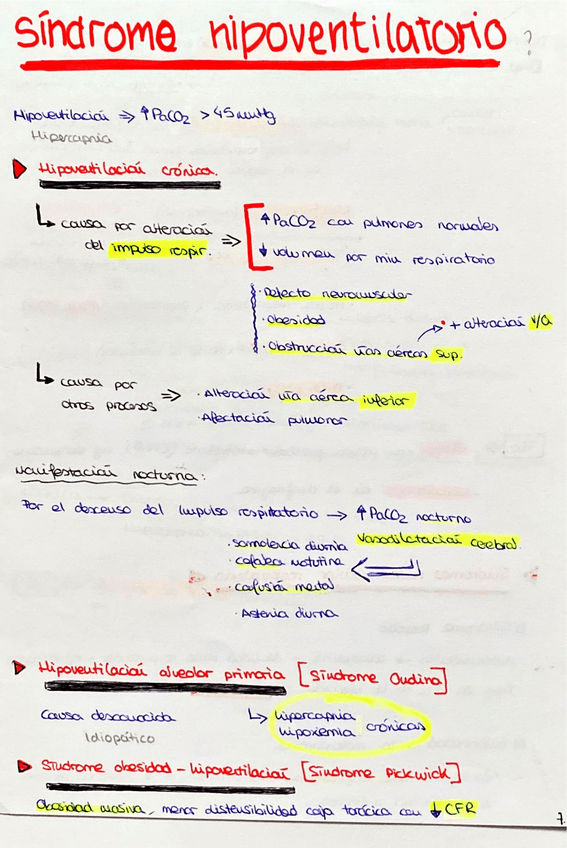 Síndrome hipoventilatorio ?
Hipoventilación ⇒ ↑PaCO2 > 45mmHg
Hipercapnia
► Hipoventilación crónica.
↳ causa por alteración del impulso respir. ⇒
↑PaCO2 con pulmones normales
↓ volumen por min respiratorio
· Defecto neuromuscular
· Obesidad
· Obstrucción vías aéreas sup. → + alteración V/Q
↳ causa por otros procesos ⇒
· Alteración vía aérea inferior
· Afectación pulmonar
Manifestación nocturna:
Por el descenso del impulso respiratorio → ↑PaCO2 nocturno
Vasodilatación cerebral.
· somnolencia diurnia
· cefalea notutina
· confusión mental
· Astenia diurna
► Hipoventilación alveolar primaria [Síndrome Ondina]
Causa desconocida
Idiopático
↳ hipercapnia hipoxemia crónicas
► Síndrome obesidad - hipoventilación [Síndrome Pickwick]
Obesidad masiva, menor distensibilidad caja torácica con ↓ CFR
7.